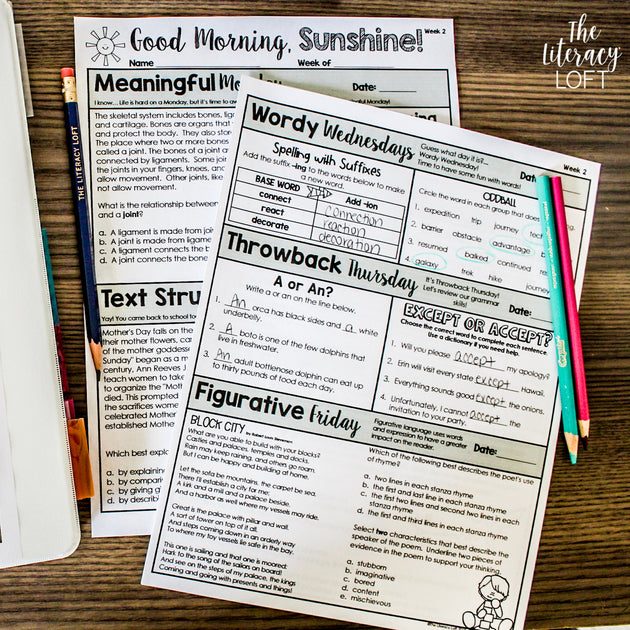 The
Literacy
LOFT
Week 2
Good Morning, Sunshine!
Name Week of
Meaningful
Date:
I know... Life is hard on a Monday, but it's time to
Monday!
The skeletal system includes bones,
and cartilage. Bones are organs that
and protect the body. They also store
The place where two or more bones
called a joint. The bones of a joint
connected by ligaments. Some
the joints in your fingers, knees, and
allow movement. Other joints, like
not allow movement.
What is the relationship between
and a joint?
a. A ligament is made from
b. A joint is made from
c. A ligament connects the
d. A joint connects the bone
Text
Yay! You came back to school
Mother's Day falls on the
their moms cards, flowers,
of the mother goddess
Sunday" began as a
century, Ann Reeves
teach women to take
to organize the "Moth
died. This prompted
the sacrifices women
celebrated Mother
established Mother
Which best explains
a. by explaining
b. by comparing
c. by giving
d. by describing
THE LITERACY LOFT
Week 2
Wordy Wednesdays
Guess what day it is?...
Wordy Wednesday!
Time to have some fun with words!
Spelling with Suffixes
Add the suffix -ing to the words below to make
a new word.
BASE WORD Add -ion
connect connection
react reaction
decorate decoration
ODDBALL
Circle the word in each group that does
1. expedition trip journey
2. barrier obstacle advantage
3. resumed balked continued
4. galaxy trek hike journey
Throwback Thursday
It's Throwback Thursday!
Let's review our grammar
skills!
Date:
A or An?
Write a or an on the line below.
1. An orca has black sides and a white
underbelly.
2. A boto is one of the few dolphins that
live in freshwater.
3. An adult bottlenose dolphin can eat up
to thirty pounds of food each day.
EXCEPT OR ACCEPT?
Choose the correct word to complete each sentence.
Use a dictionary if you need help.
1. Will you please accept my apology?
2. Erin will visit every state except Hawaii.
3. Everything sounds good except the onions.
4. Unfortunately, I cannot accept the
invitation to your party.
Figurative Friday
Figurative language uses words
and expression to have a greater
impact on the reader.
Date:
BLOCK CITY by Robert Louis Stevenson
What are you able to build with your blocks?
Castles and palaces, temples and docks.
Rain may keep raining, and others go roam,
But I can be happy and building at home.
Let the sofa be mountains, the carpet be sea,
There I'll establish a city for me:
A kirk and a mill and a palace beside,
And a harbor as well where my vessels may ride.
Great is the palace with pillar and wall,
A sort of tower on top of it all,
And steps coming down in an orderly way
To where my toy vessels lie safe in the bay.
This one is sailing and that one is moored:
Hark to the song of the sailors on board!
And see on the steps of my palace, the kings
Coming and going with presents and things!
Which of the following best describes the poet's use
of rhyme?
a. two lines in each stanza rhyme
b. the first and last line in each stanza rhyme
c. the first two lines and second two lines in each
stanza rhyme
d. the first and third lines in each stanza rhyme
Select two characteristics that best describe the
speaker of the poem. Underline two pieces of
evidence in the poem to support your thinking.
a. stubborn
b. imaginative
c. bored
d. content
e. mischievous